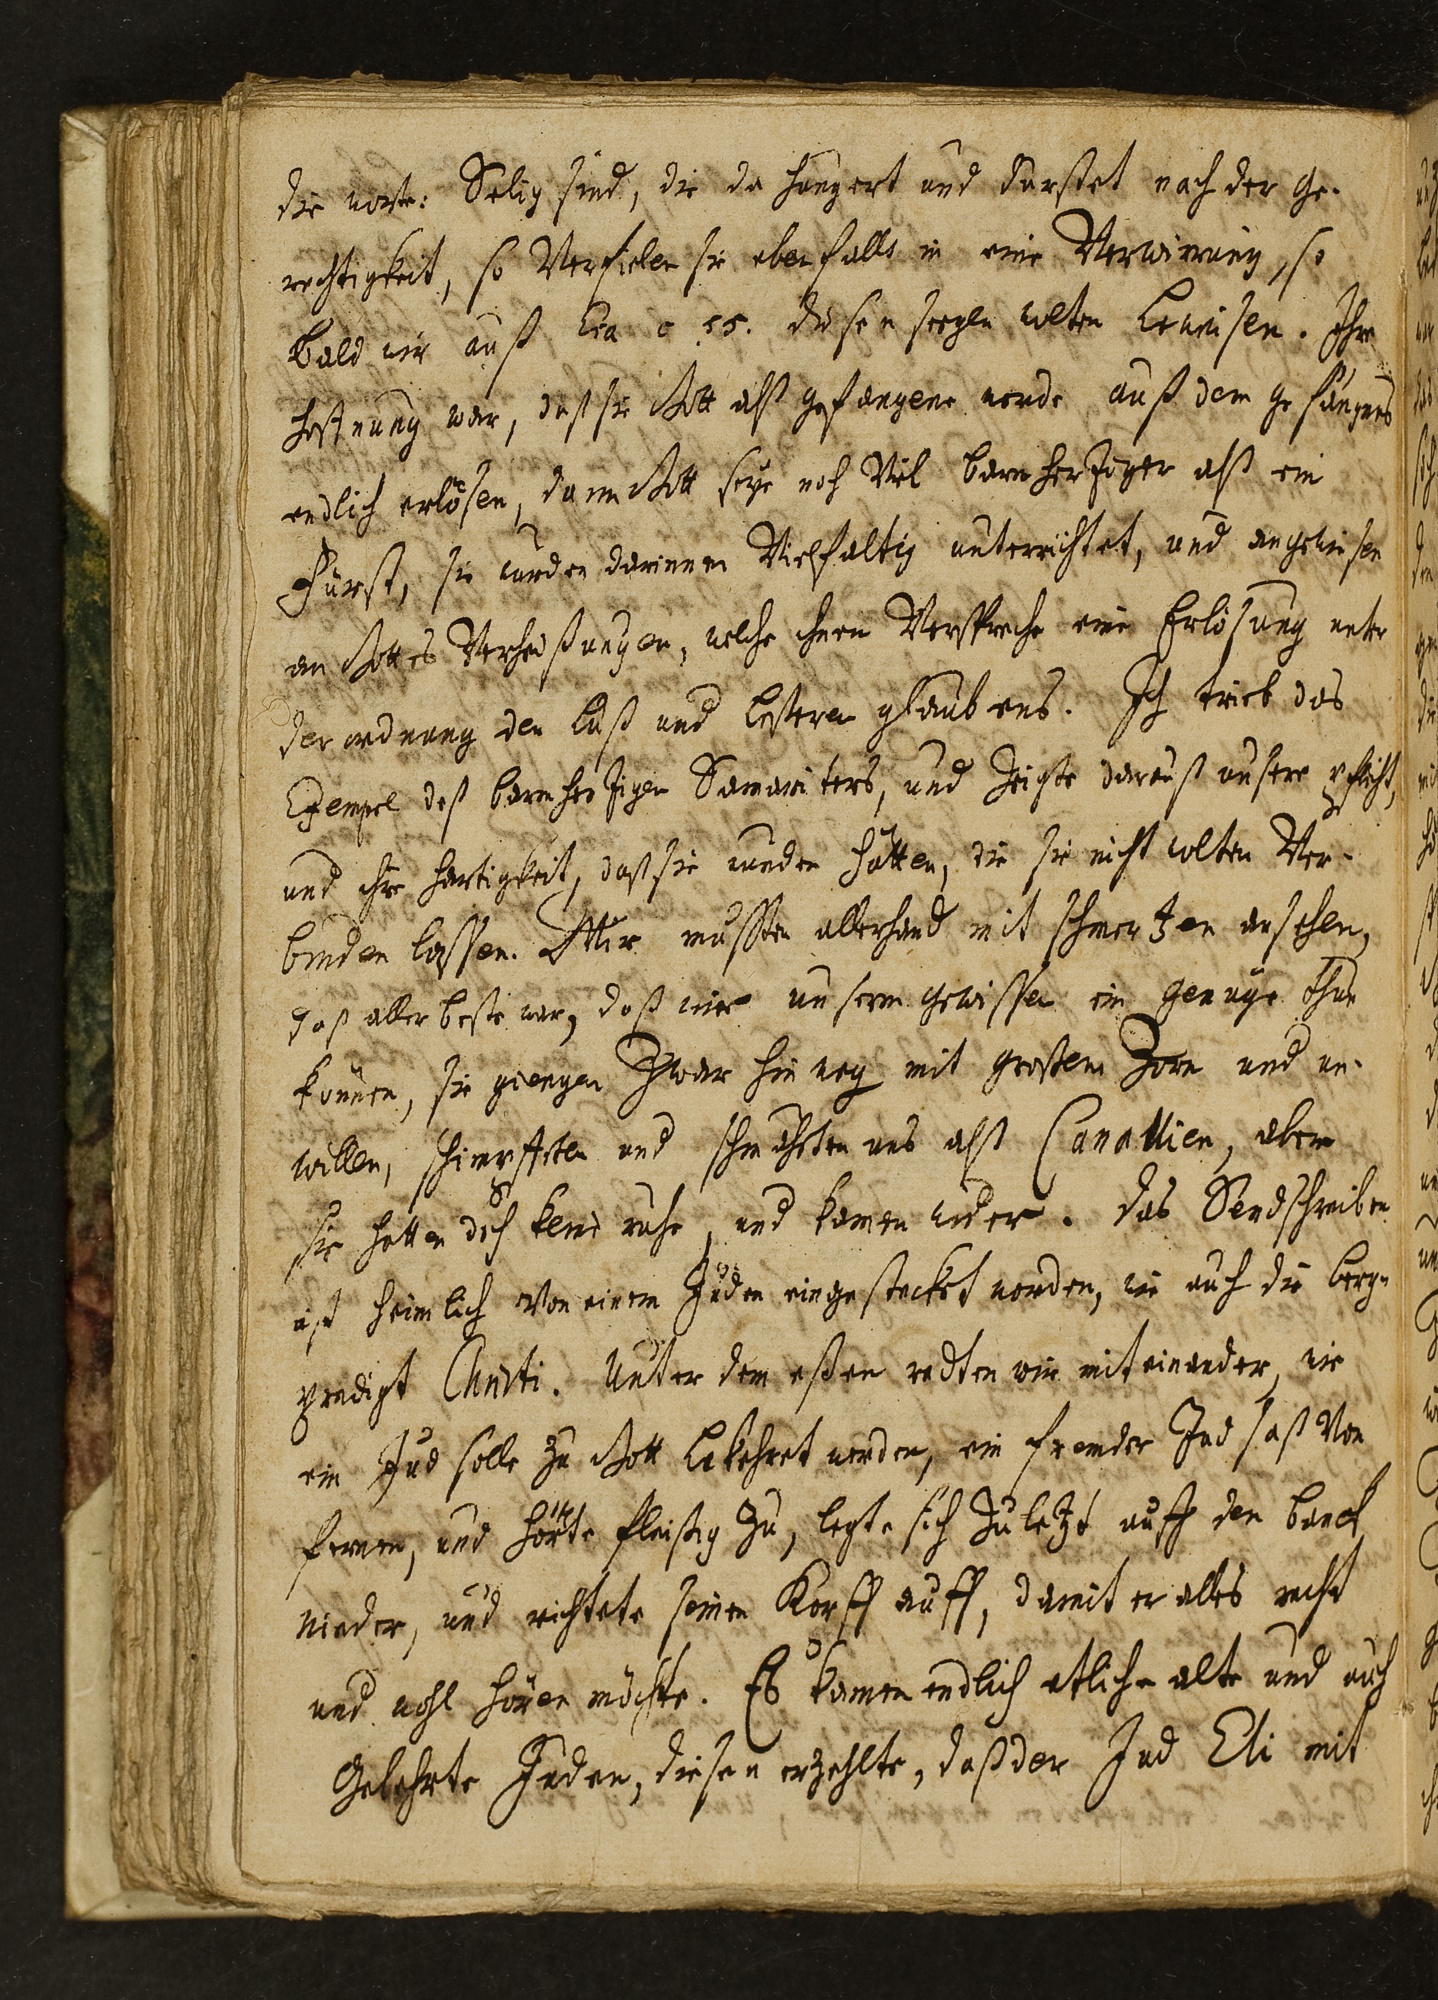 die worte: Selig sind, die da hungert und durstet nach der Ge-
rechtigkeit, so Verfielen sie ebenfalls in eine Verwirrung, so
bald wir auß Esa c 55. diesen seegen wolten beweisen. Ihre
hoffnung war, daß sie Gott alß gefangene werde auß dem gefängnis
endlich erlösen, dann Gott seye noch Viel barmherziger alß ein
Fürst, sie wurden darinnen Vielfaltig unterrichtet, und angewiesen
an Gottes Verheißungen, welche ihnen Verspreche eine Erlösung unter
der ordnung der buß und glaubens. Ich trieb das
Exempel deß barmherzigen Samariters, und zeigte darauß unsere pflicht,
und ihre hartigkeit, daß sie wunden hätten, die sie nicht wolten Ver-
binden lassen. Wir mussten allerhand mit schmertzen ansehen,
daß aller beste war, daß wir unserm gewissen ein genüge thun
können, sie giengen Zwar hinweg mit großem Zorn und un-
willen, schimpfften und schmäheten uns alß Canallien, aber
sie hatten doch keine ruhe, und kamen wider. Das Sendschreiben
ist heimlich von einem Juden eingestecket worden, wie auch die berg-
predigt Christi. Unter dem eßen redten wir mit einander, wie
ein Jud solle zu Gott bekehret werden, ein fremder Jud saß von
fernen, und hörte fleißig zu, legte sich zuletzt auff den banck
nieder, und richtete seinen Kopff auff, damit er alles recht
und wohl hören möchte. Es kamen endlich etliche alte und auch
Gelehrte Juden, diesen erzehlte, daß der Jud Eli mit